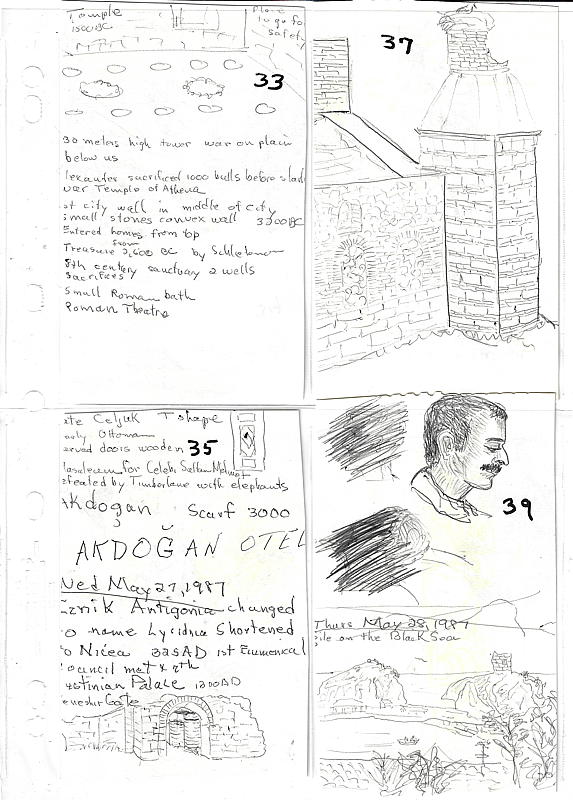 Temple
1500 BC
Place
to go for
safety
33
30 meters high tower war on plain
below us
sacrificed 1000 bulls before
Temple of Athena
city wall in middle of city
small stones convex wall 3200 BC
Entered homes from top
from
Treasure 2,600 BC by
8th century sanctuary 2 wells
sacrifices
Small Roman bath
Roman Theatre
37
te Celjuk T shape
Ottoman
doors wooden 35
for Celebi
efeated by Timberlane with elephants
Akdoğan Scarf 3000
AKDOĞAN OTEL
Wed May 27, 1987
Iznik Antigonia changed
o name Shortened
o Nicea 325 AD 1st Ecumenical
ouncil met & 7th
stinian Palace 1300 AD
Gate
39
Thurs May 28, 1987
ile on the Black Sea